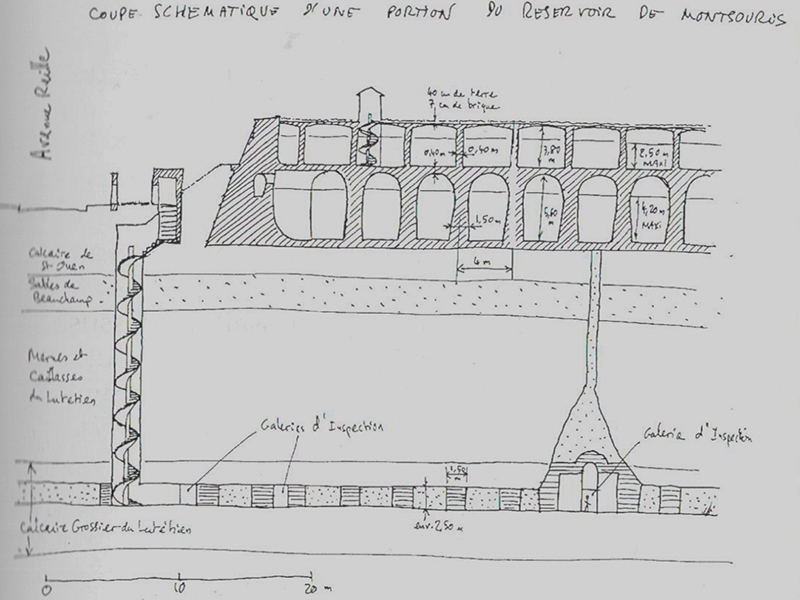 COUPE SCHEMATIQUE D'UNE PORTION DU RESERVOIR DE MONTSOURIS
Avenue Reille
40 cm de terre
7 cm de brique
0,40 m
0,40 m
3,80 m
2,50 m
MAXI
1,50 m
5,60 m
4,20 m
MAXI
4 m
Calcaire de
St Ouen
Sables de
Beauchamp
Marnes et
Caillasses
du Lutétien
Galeries d'Inspection
Galerie d'Inspection
1,50
m
env. 2,50 m
Calcaire Grossier du Lutétien
0
10
20 m